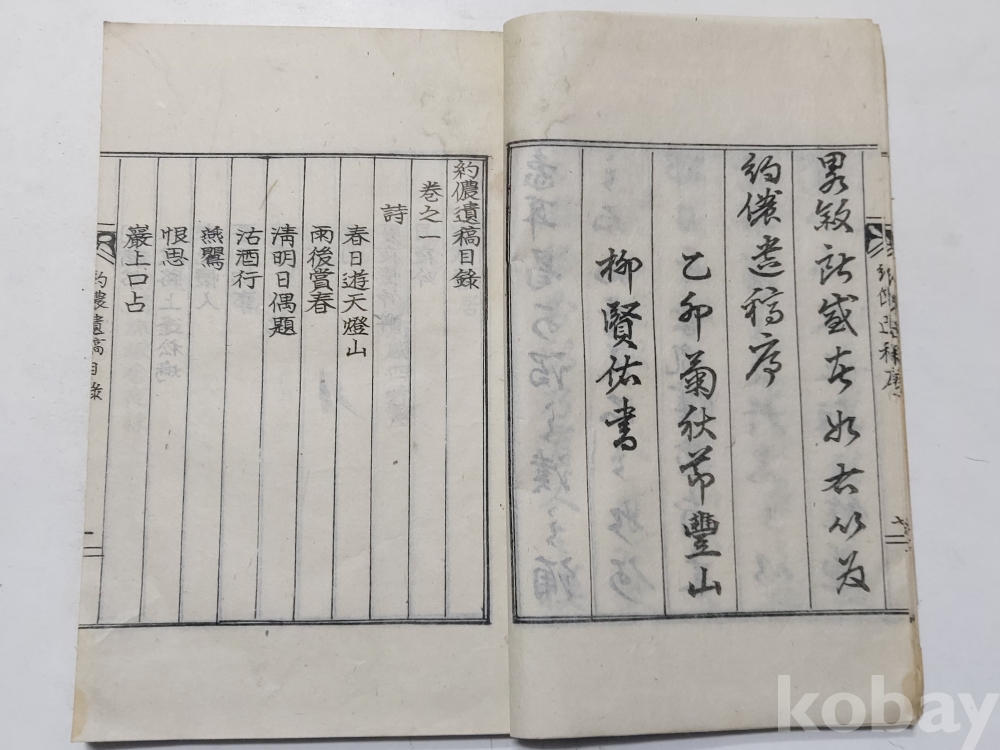 畧敘所感于如右以爲
約儂遺稿序
乙卯菊秋節豐山
柳賢佑書
約儂遺稿目錄
卷之一
詩
春日遊天燈山
雨後賞春
淸明日偶題
沽酒行
燕鸎
恨思
巖上口占
約儂遺稿目錄
一
kobay